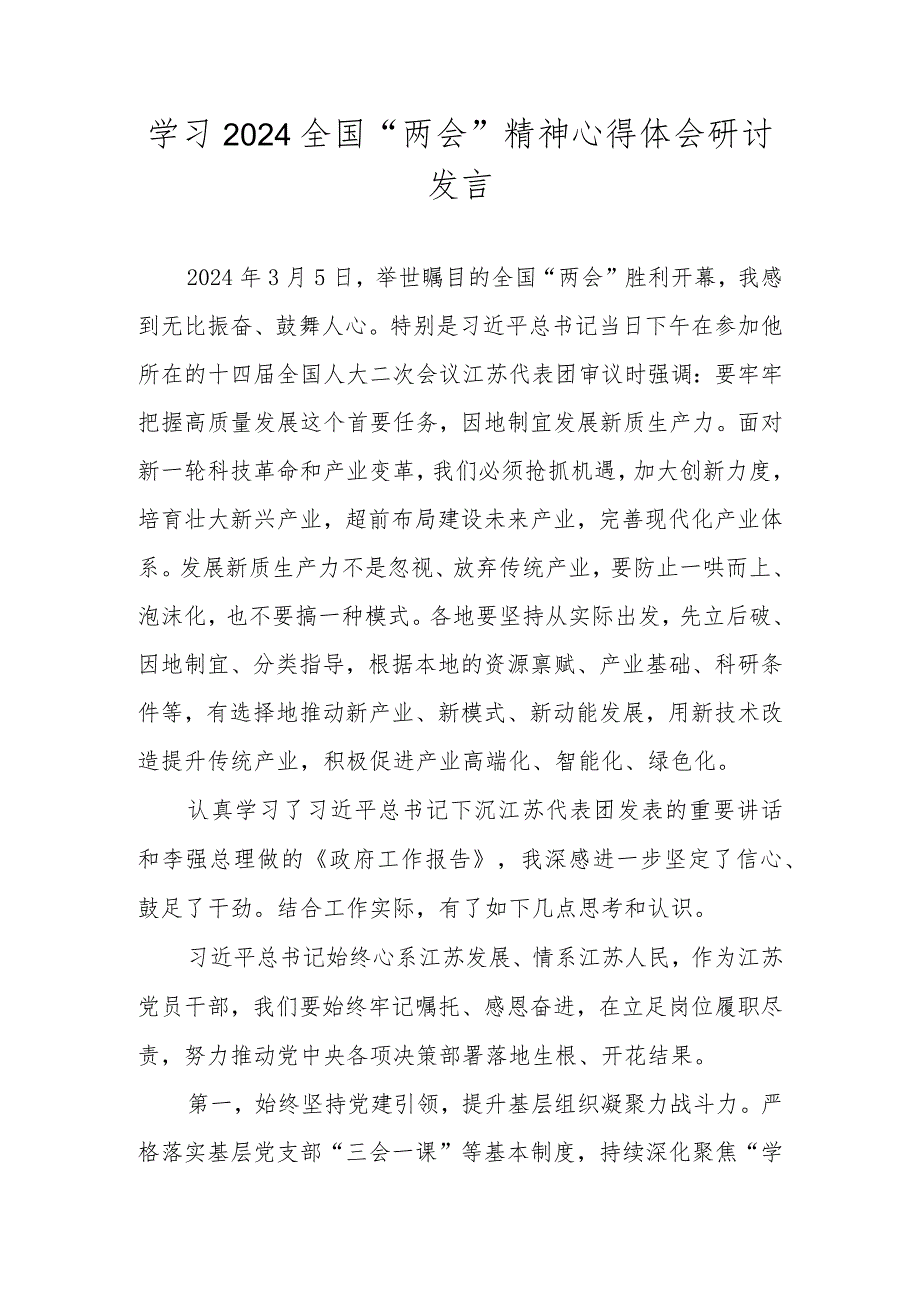 学习 2024 全国“两会”精神心得体会研讨
发言
2024 年 3 月 5 日，举世瞩目的全国“两会”胜利开幕，我感
到无比振奋、鼓舞人心。特别是习近平总书记当日下午在参加他
所在的十四届全国人大二次会议江苏代表团审议时强调：要牢牢
把握高质量发展这个首要任务，因地制宜发展新质生产力。面对
新一轮科技革命和产业变革，我们必须抢抓机遇，加大创新力度，
培育壮大新兴产业，超前布局建设未来产业，完善现代化产业体
系。发展新质生产力不是忽视、放弃传统产业，要防止一哄而上、
泡沫化，也不要搞一种模式。各地要坚持从实际出发，先立后破、
因地制宜、分类指导，根据本地的资源禀赋、产业基础、科研条
件等，有选择地推动新产业、新模式、新动能发展，用新技术改
造提升传统产业，积极促进产业高端化、智能化、绿色化。
认真学习了习近平总书记下沉江苏代表团发表的重要讲话
和李强总理做的《政府工作报告》，我深感进一步坚定了信心、
鼓足了干劲。结合工作实际，有了如下几点思考和认识。
习近平总书记始终心系江苏发展、情系江苏人民，作为江苏
党员干部，我们要始终牢记嘱托、感恩奋进，在立足岗位履职尽
责，努力推动党中央各项决策部署落地生根、开花结果。
第一，始终坚持党建引领，提升基层组织凝聚力战斗力。严
格落实基层党支部“三会一课”等基本制度，持续深化聚焦“学